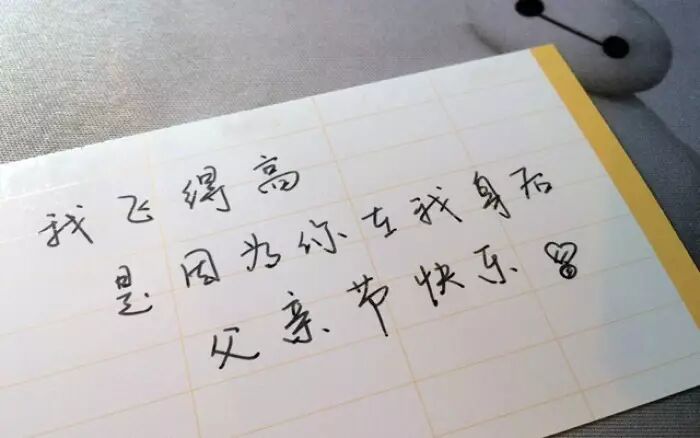 我飞得高
是因为你在我身后
父亲节快乐